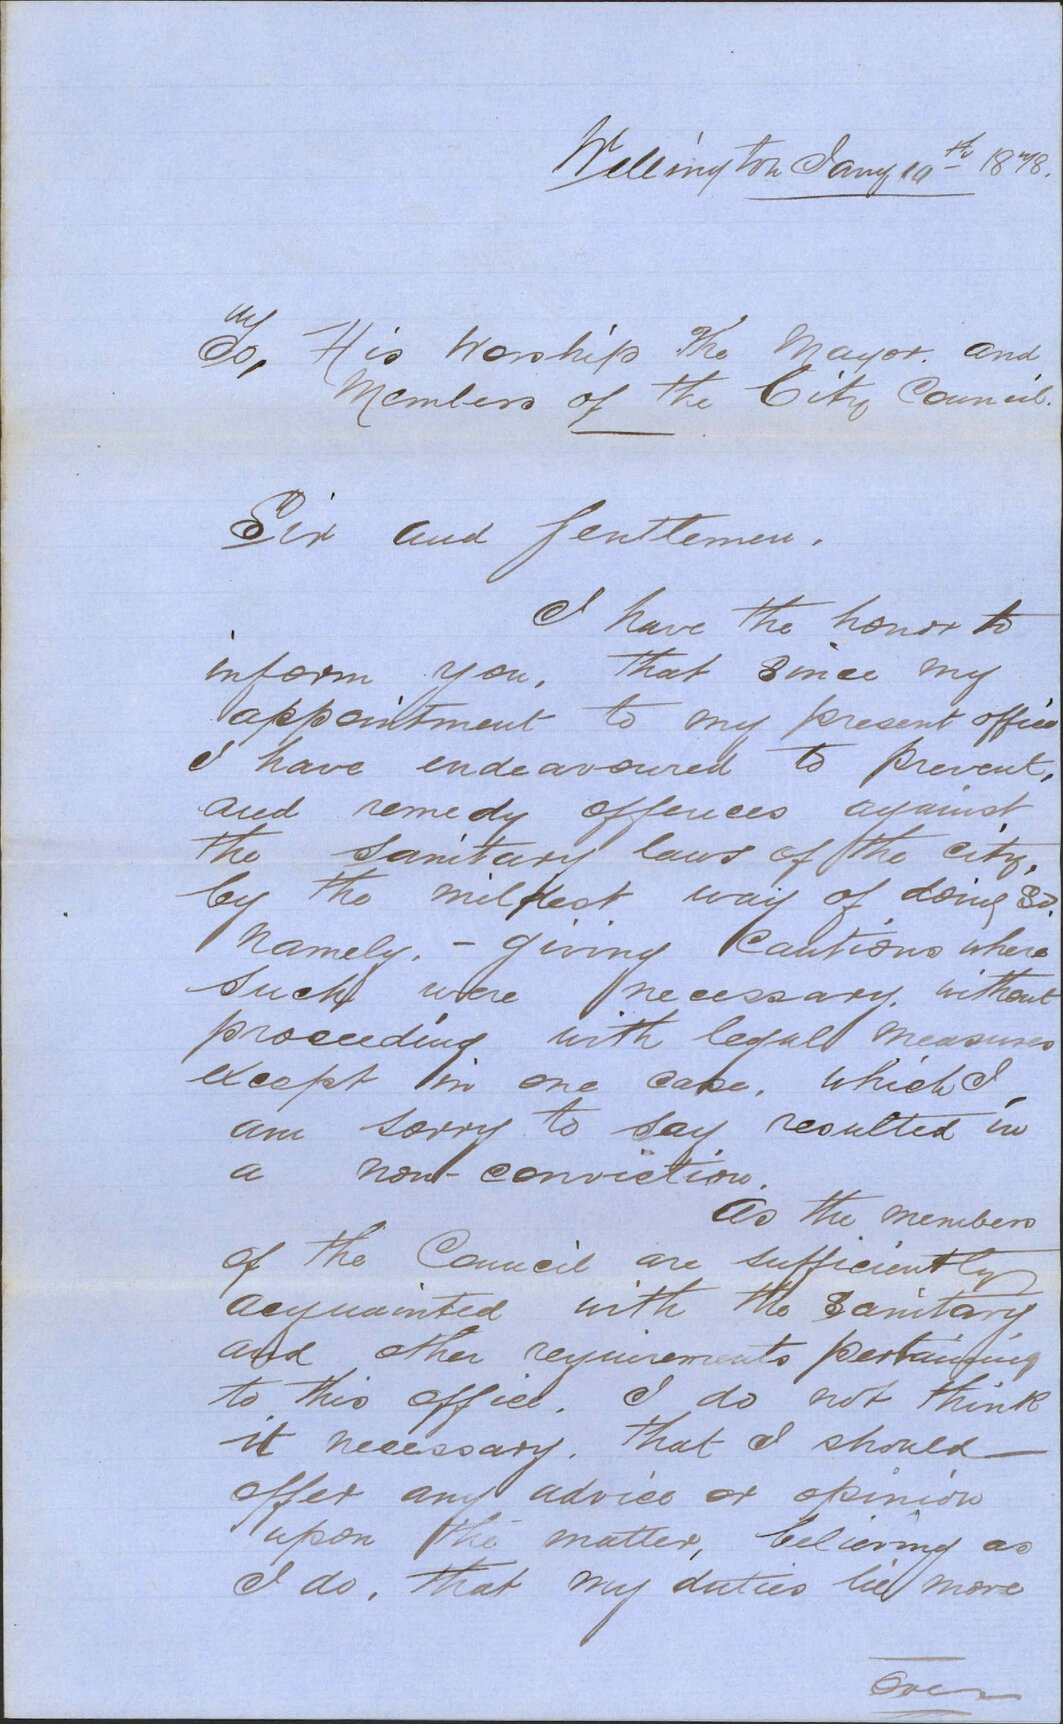 Wellington Jany 10th 1878.
To, His Worship The Mayor. and
Members of the City Council.
Sir and Gentlemen.
I have the honor to
inform you, that since my
appointment to my present office
I have endeavoured to prevent,
and remedy offences against
the sanitary laws of the city,
by the mildest way of doing so.
Namely. - giving cautions where
such were necessary. without
proceeding with legal measures
except in one case, which I
am sorry to say resulted in
a non-conviction.
As the members
of the Council are sufficiently
acquainted with the sanitary
and other requirements pertaining
to this office. I do not think
it necessary. that I should
offer any advice or opinion
upon the matter, believing as
I do, that my duties lie more
Over